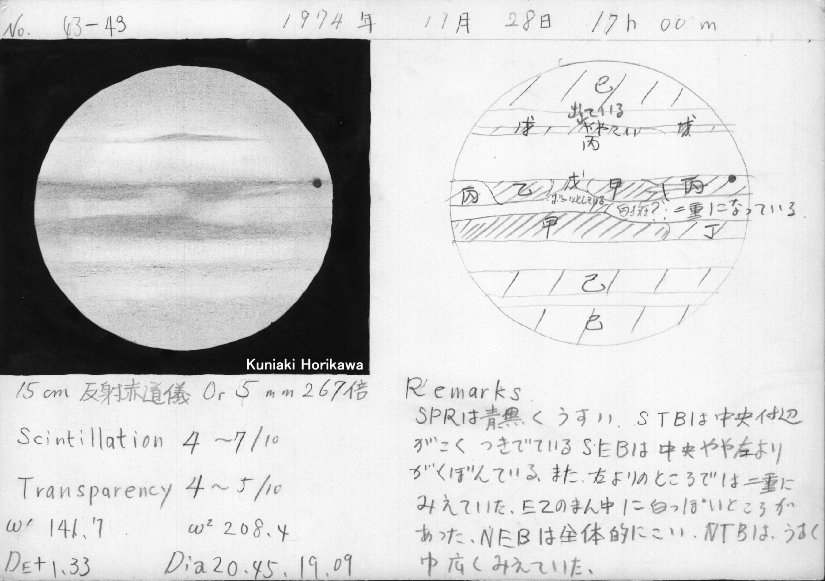 No. 63-43 1974年 11月 28日 17h 00m
己
出ている
戊 戊
丙
丙 乙 戊 甲 丙
白斑? 二重になっている
甲 丁
己
己
Kuniaki Horikawa
15cm 反射赤道儀 Or 5mm 267倍
Scintillation 4~7/10
Transparency 4~5/10
ω¹ 141.7 ω² 208.4
DE+1.33 Dia 20.45, 19.09
Remarks
SPRは青黒くうすい、STBは中央付近
がこく つきでている SEBは中央やや右より
がくぼんでいる、また、左よりのところでは二重に
みえていた、EZのまん中に白っぽいところが
あった、NEBは全体的にこい、NTBは、うすく
巾広くみえていた、